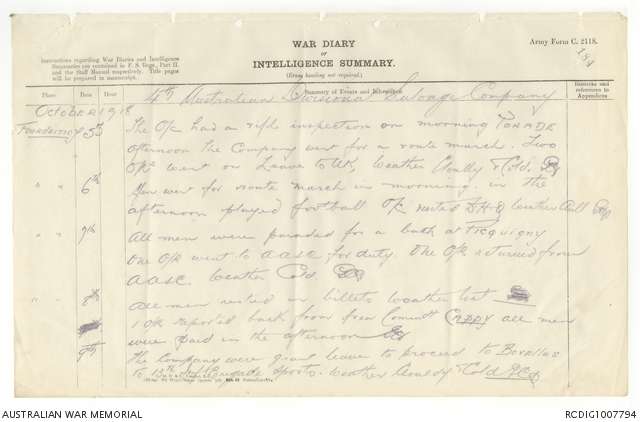 WAR DIARY
or
INTELLIGENCE SUMMARY.
(Erase heading not required.)
Army Form C. 2118.
Instructions regarding War Diaries and Intelligence
Summaries are contained in F. S. Regs., Part II.
and the Staff Manual respectively. Title pages
will be prepared in manuscript.
Place Date Hour Summary of Events and Information Remarks and references to Appendices
4th Australian Divisional Salvage Company
October 1918
5th The O/C had a rifle inspection on morning PARADE
afternoon the Company went for a route march. Two
O/R went on Leave to UK, weather Cloudy & Cold.
" " 6th Men went for route march in morning. in the
afternoon played football O/C visited D.H.Q weather
" " 7th All men were paraded for a bath at PICQUIGNY
One O/R went to AASC for duty. One O/R returned from
AASC. Weather Cold
" 8th All men rested in billets weather wet
1 O/R reported back from CAPPY all men
were paid in the afternoon
9th The Company were grant leave to proceed to
to 13th Brigade Sports. Weather Cloudy & Cold
AUSTRALIAN WAR MEMORIAL
RCDIG1007794